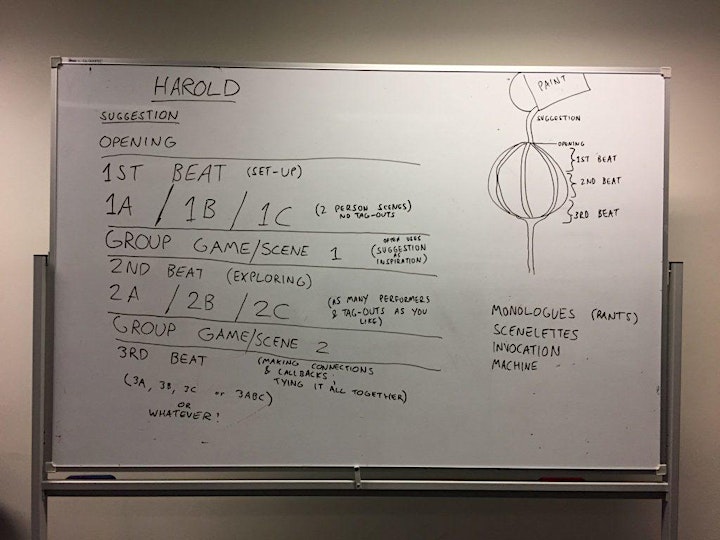 HAROLD
SUGGESTION
OPENING
1ST BEAT (SET-UP)
1A / 1B / 1C (2 PERSON SCENES)
NO TAG-OUTS
GROUP GAME/SCENE 1
OFTEN USES
(SUGGESTION
AS
INSPIRATION)
2ND BEAT (EXPLORING)
2A / 2B / 2C
(AS MANY PERFORMERS
& TAG-OUTS AS YOU
LIKE)
GROUP GAME/SCENE 2
3RD BEAT
(MAKING CONNECTIONS
& CALLBACKS!
TYING IT ALL TOGETHER)
(3A, 3B, 3C or 3ABC)
OR
WHATEVER!
PAINT
SUGGESTION
OPENING
1ST BEAT
2ND BEAT
3RD BEAT
MONOLOGUES (RANTS)
SCENELETTES
INVOCATION
MACHINE